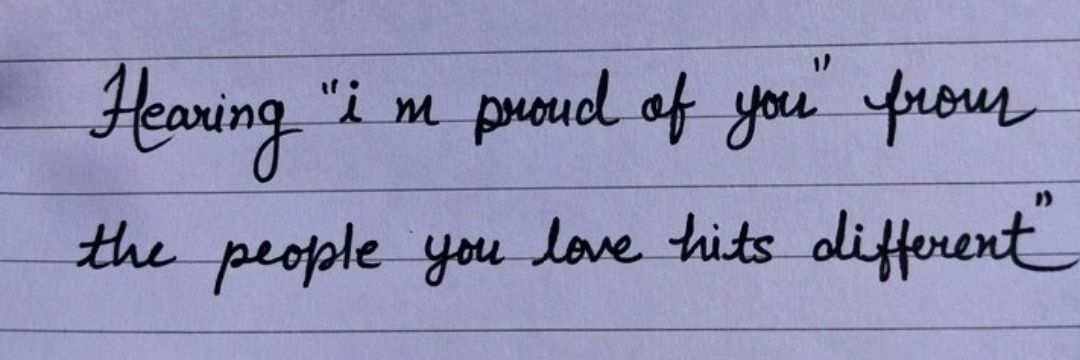 Hearing "i m proud of you" from
the people you love hits different"